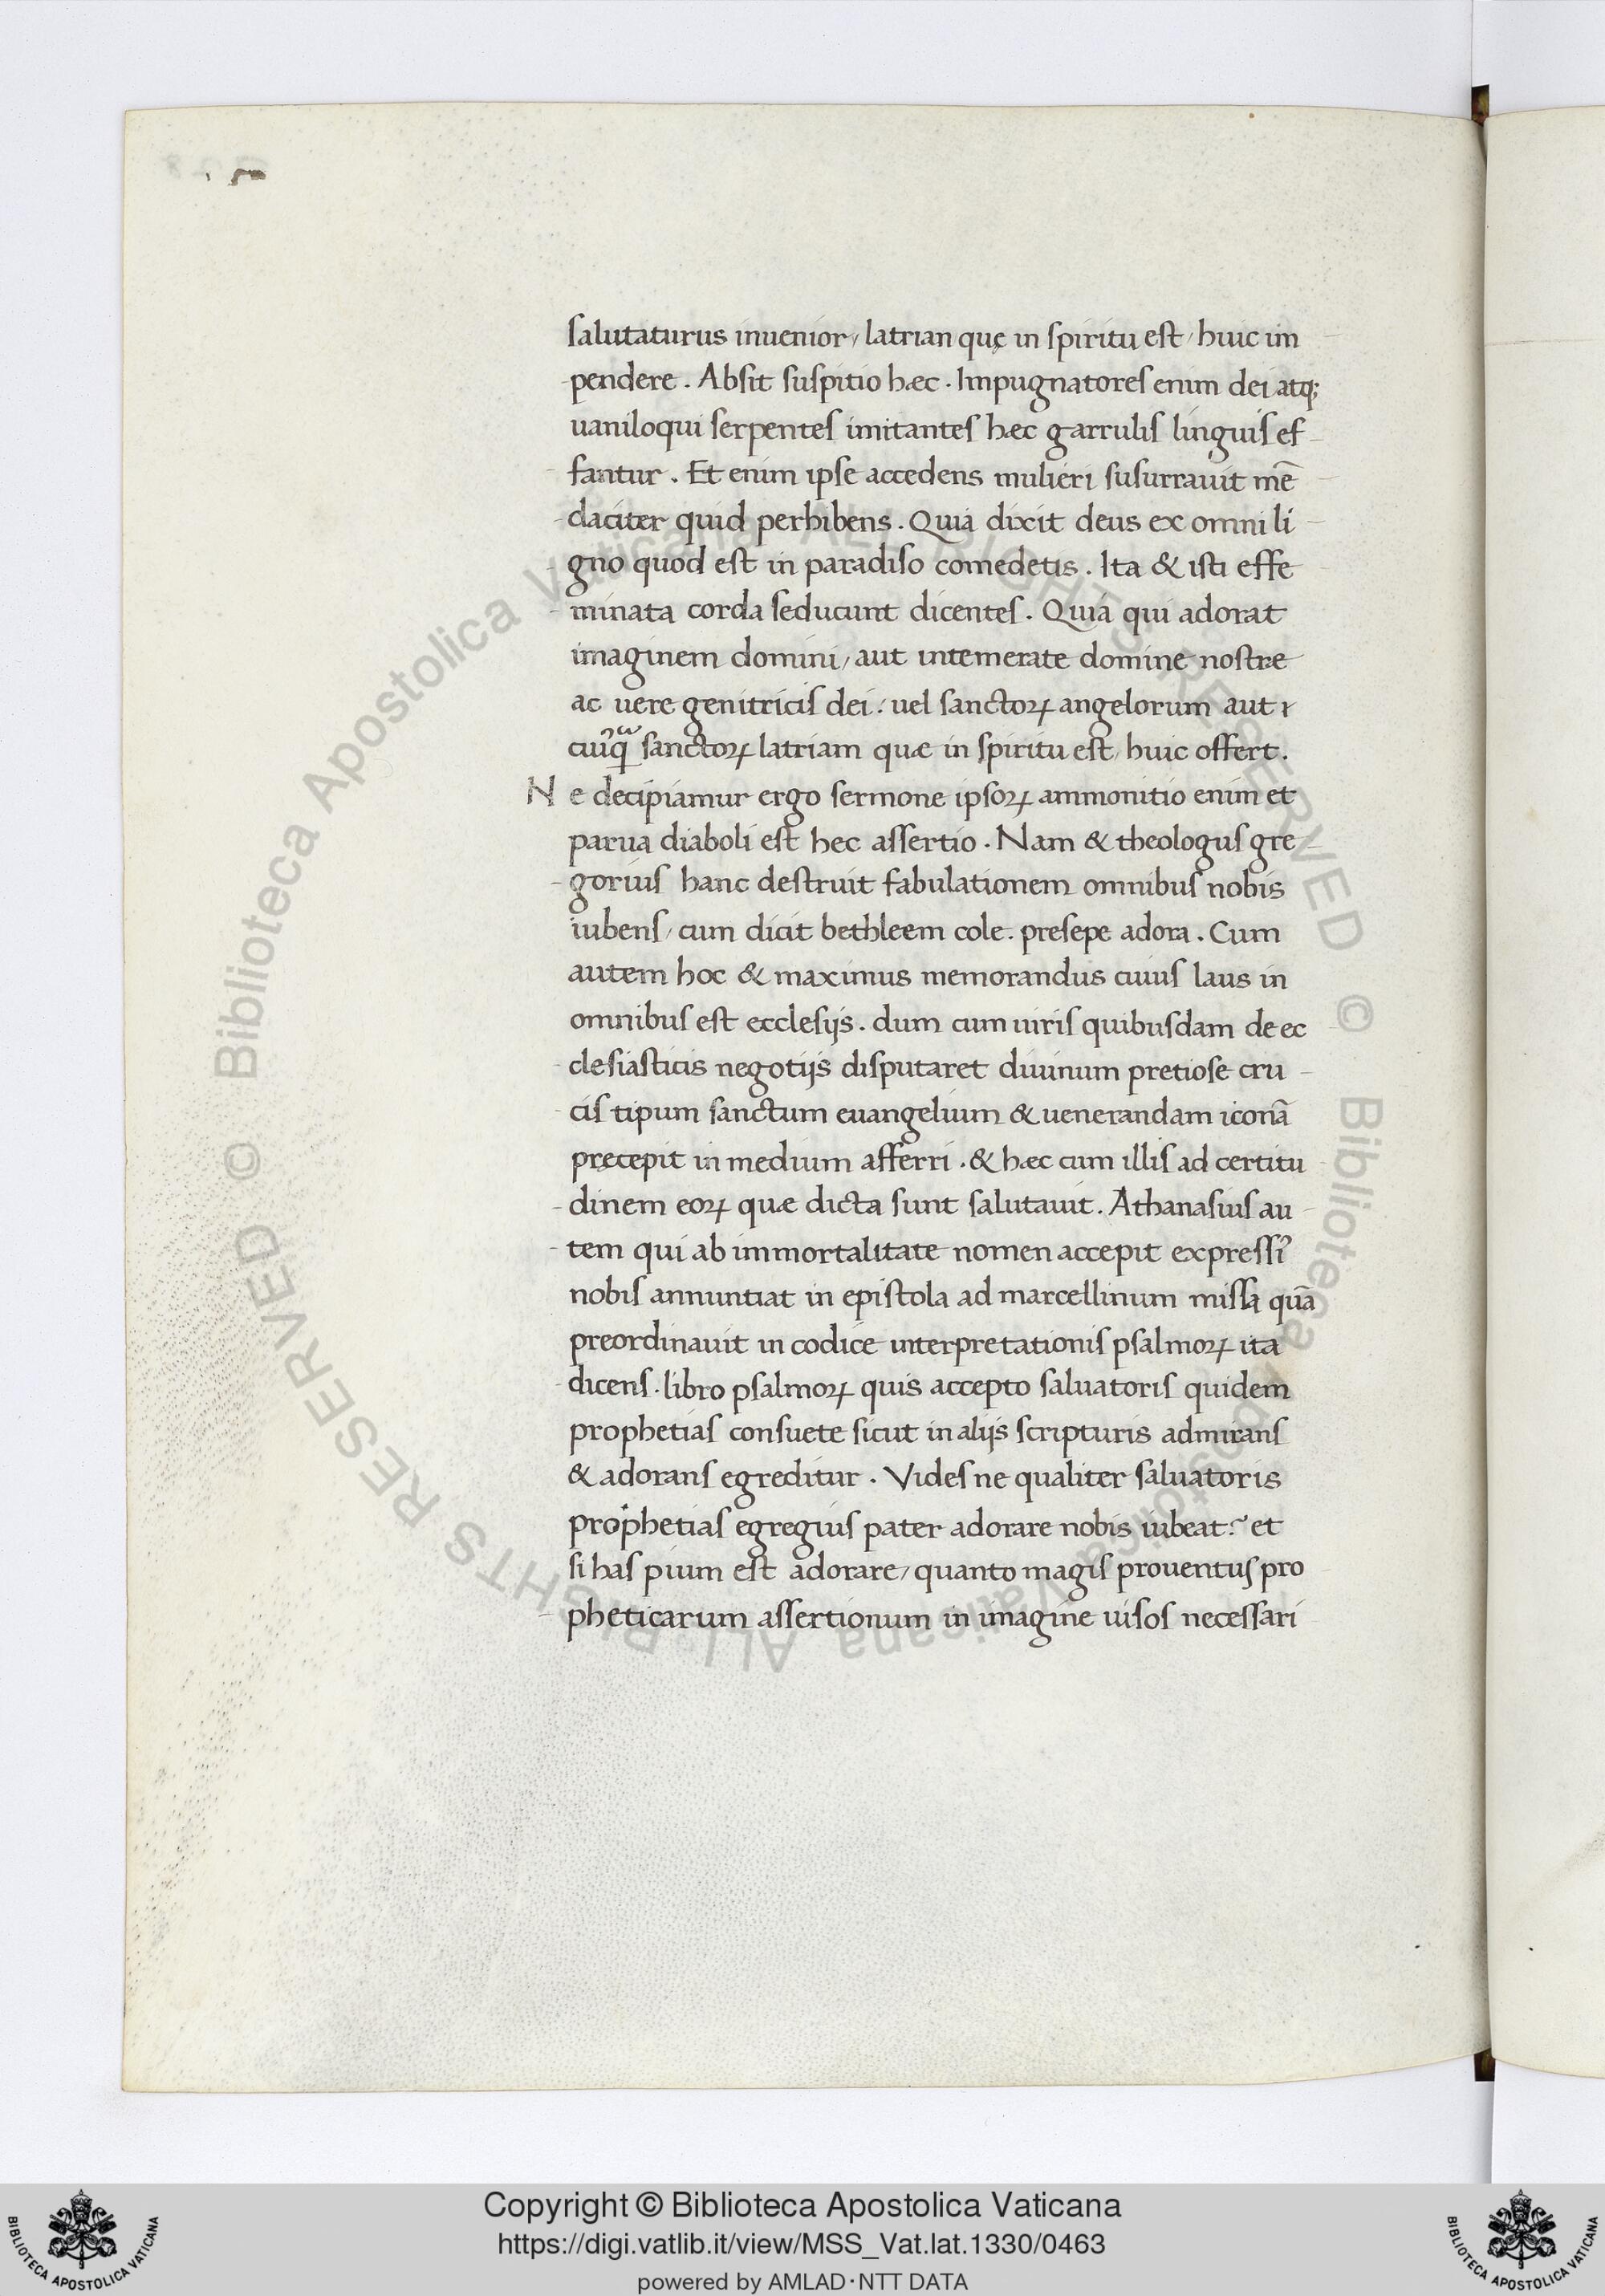 salutaturus inuenior, latrian quę in spiritu est, huic im
pendere. Absit suspitio hæc. Impugnatores enim dei atq;
uaniloqui serpentes imitantes hæc garrulis linguis ef
fantur. Et enim ipse accedens mulieri susurrauit mē
daciter quid perhibens. Quia dixit deus ex omni li
gno quod est in paradiso comedetis. Ita & isti effe
minata corda seducunt dicentes. Quia qui adorat
imaginem domini, aut intemerate domine nostre
ac uere genitricis dei: uel sanctoꝝ angelorum aut
sanctoꝝ latriam quæ in spiritu est, huic offert.
Ne decipiamur ergo sermone ipsoꝝ ammonitio enim et
parua diaboli est hec assertio. Nam & theologus gre
gorius hanc destruit fabulationem omnibus nobis
iubens, cum dicit bethleem cole. presepe adora. Cum
autem hoc & maximus memorandus cuius laus in
omnibus est ecclesijs. dum cum uiris quibusdam de ec
clesiasticis negotijs disputaret diuinum pretiose cru
cis tipum sanctum euangelium & uenerandam iconā
precepit in medium afferri. & hæc cum illis ad certitu
dinem eoꝝ quæ dicta sunt salutauit. Athanasius au
tem qui ab immortalitate nomen accepit expressi᾽
nobis annuntiat in epistola ad marcellinum missa quā
preordinauit in codice interpretationis psalmoꝝ ita
dicens. libro psalmoꝝ quis accepto saluatoris quidem
prophetias consuete sicut in alijs scripturis admirans
& adorans egreditur. Vides ne qualiter saluatoris
prophetias egregius pater adorare nobis iubeat? et
si has pium est adorare, quanto magis prouentus pro
pheticarum assertionum in imagine uisos necessari
© Biblioteca Apostolica Vaticana ALL RIGHTS RESERVED © Biblioteca Apostolica Vaticana ALL RIGHTS RESERVED
Copyright © Biblioteca Apostolica Vaticana
https://digi.vatlib.it/view/MSS_Vat.lat.1330/0463
powered by AMLAD·NTT DATA
BIBLIOTECA APOSTOLICA VATICANA
BIBLIOTECA APOSTOLICA VATICANA